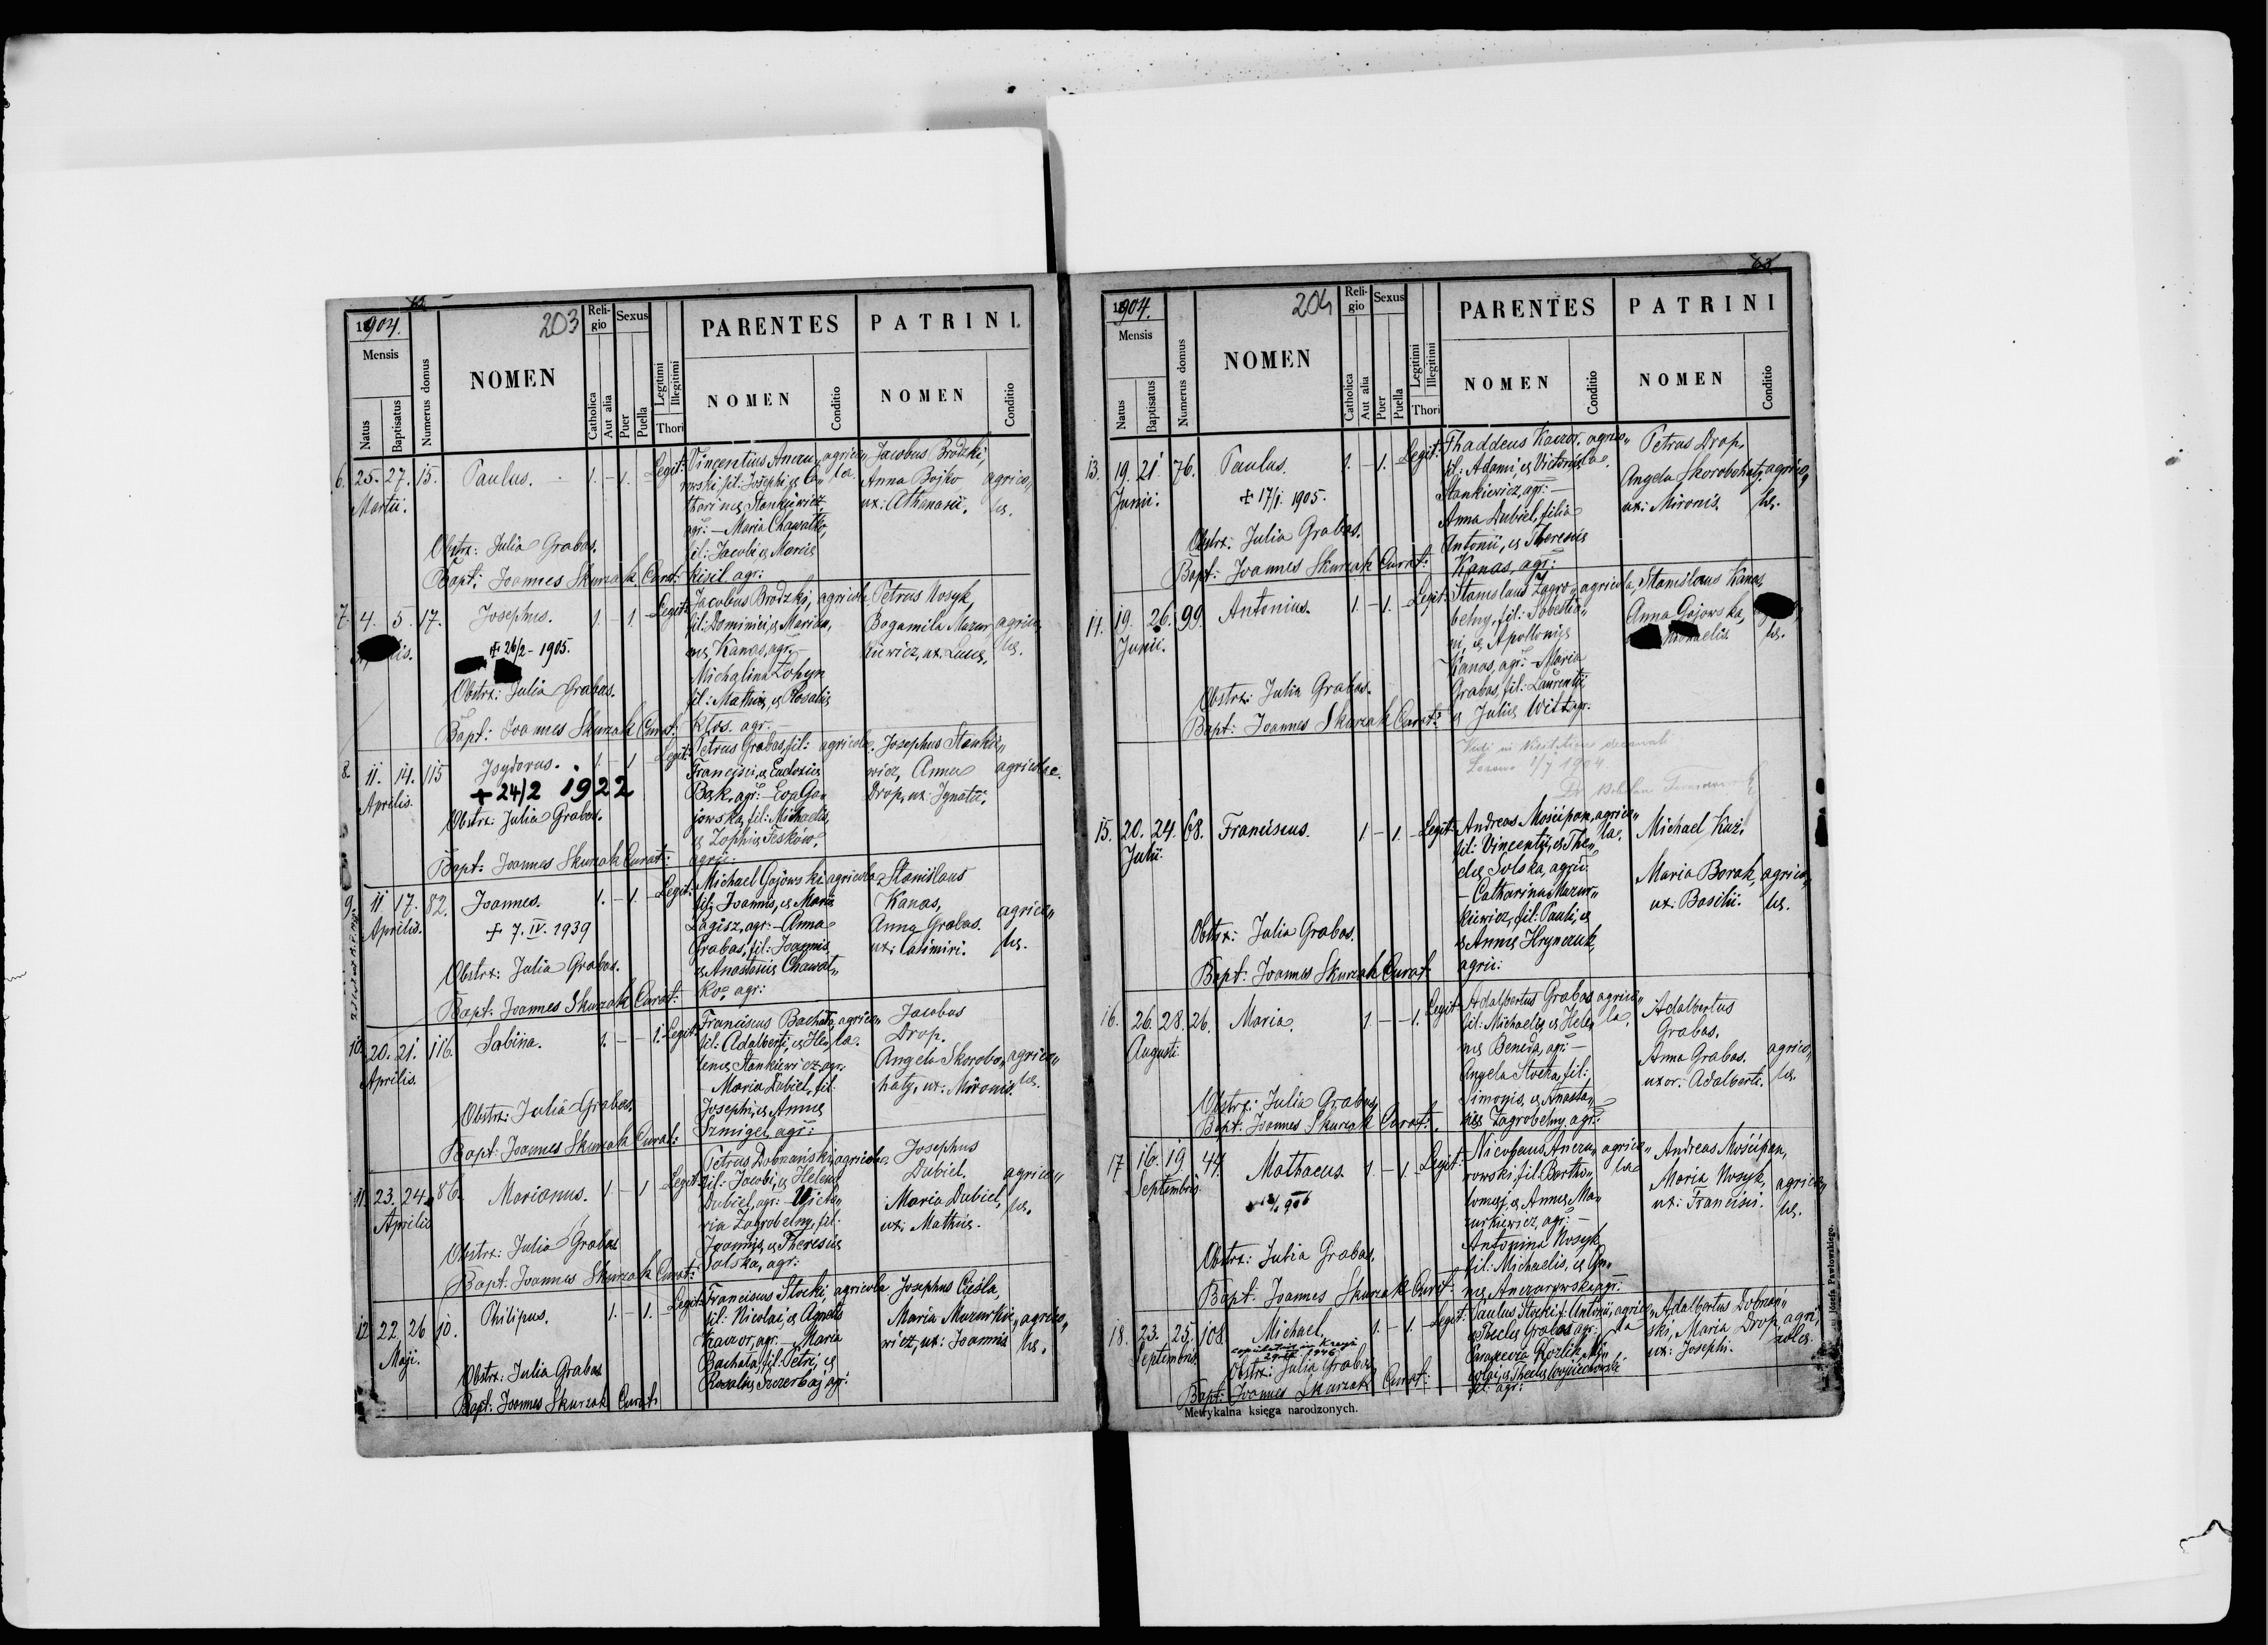 62
1904.
203
Mensis
Natus
Baptisatus
Numerus domus
NOMEN
Reli-
gio
Catholica
Aut alia
Sexus
Puer
Puella
Legitimi
Illegitimi
Thori
PARENTES
NOMEN
Conditio
PATRINI.
NOMEN
Conditio
6. 25. 27. 15. Paulus. 1. – 1. – Legit:
Martii.
Obstrx: Julia Grabas.
Bapt: Joannes Skurzak Curat:
Vincentius Anczu„ agrico„
rowski fil: Josephi, et Ca„ la.
tharinae Stankiewicz,
agr: – Maria Chawałko,
fil: Jacobi et Mariae
Kisil agr:
Jacobus Brodzki,
Anna Bojko agrico„
ux: Athanasii. lae.
7. 4. 5. 17. Josephus. 1. – 1. – Legit:
+ 26/2 – 1905.
Obstrx: Julia Grabas.
Bapt: Joannes Skurzak Curat:
Jacobus Brodzki, agricola
fil: Dominici, et Marian„
nae Kanas, agr. –
Michalina
fil: Mathiae, et Rosaliae
Kłos. agr. –
Petrus Nosyk,
Bogumila Mazur agrico„
kiewicz, ux: Lucae. lae.
8. 11. 14. 115 Isydorus. 1 – 1 Legit:
Aprilis.
+ 24/2 1922
Obstrx: Julia Grabas.
Bapt: Joannes Skurzak Curat:
Petrus Grabas, fil: agricola.
Francisci, et Eudoxiae
Bek, agr: – Eva Ga„
jowska, fil: Michaelis,
et Zophiae Feskow,
agric:
Josephus Stankie„
wicz, Anna agricolae.
Drop, ux: Ignatii.
9. 11 17. 82. Joannes. 1. – 1. – Legit:
Aprilis.
+ 7. IV. 1939
Obstrx: Julia Grabas.
Bapt: Joannes Skurzak Curat:
Michael Gajowski agricola
fil: Joannis, et Mariae
Łagisz, agr: – Anna
Grabas, fil: Joannis,
et Anastasiae Chawał„
ko, agr:
Stanislaus
Kanas,
Anna Grabas. agrico„
ux: Casimiri. lae.
10. 20. 21. 116. Sabina. 1. – – 1. Legit:
Aprilis.
Obstrx: Julia Grabas.
Bapt: Joannes Skurzak Curat:
Franciscus Bachata, agrico„
fil: Adalberti, et He„ la.
lenae Stankiewicz, agr:
– Maria Dubiel, fil:
Josephi, et Annae
Szmigel, agr:
Jacobus
Drop.
Angela Skorobo„ agrico„
haty, ux: Mironis. lae.
11. 23. 24. 86. Marianus. 1 – 1 – Legit:
Aprilis
Obstrx: Julia Grabas
Bapt: Joannes Skurzak Curat:
Petrus Dobrzański, agricola.
fil: Jacobi, et Helenae
Dubiel, agr: Victo„
ria Zagrobelny, fil:
Joannis, et Theresiae
Solska, agr:
Josephus
Dubiel. agrico„
Maria Dubiel, lae.
ux: Mathiae.
12 22. 26 10. Philipus. 1. – 1. – Legit:
Maji.
Obstrx: Julia Grabas
Bapt: Joannes Skurzak Curat:
Franciscus Stocki, agricola
fil: Nicolai, et Agnetis
Kaczor, agr. – Maria
Bachata, fil: Petri, et
Rosaliae Szczerbaj agr:
Josephus Cieśla,
Maria Mazurkie„ agrico„
wicz, ux: Joannis lae.
63
1904.
204
Mensis
Natus
Baptisatus
Numerus domus
NOMEN
Reli-
gio
Catholica
Aut alia
Sexus
Puer
Puella
Legitimi
Illegitimi
Thori
PARENTES
NOMEN
Conditio
PATRINI
NOMEN
Conditio
13. 19. 21. 76. Paulus. 1. – 1. – Legit:
Junii.
+ 17/1. 1905.
Obstrx: Julia Grabas.
Bapt: Joannes Skurzak Curat:
Thaddeus Kaczor, agrico„
fil: Adami, et Victoriae la.
Stankiewicz, agr: –
Anna Dubiel, filia
Antonii, et Theresiae
Kanas, agr:
Petrus Drop,
Angela Skorobohaty, agrico„
ux: Mironis. lae.
14. 19. 26. 99. Antonius. 1. – 1. – Legit:
Junii.
Obstrx: Julia Grabas.
Bapt: Joannes Skurzak Curat:
Stanislaus Zagro„ agricola,
belny, fil: Sebestia„
ni, et Apolloniae
Kanas, agr: – Maria
Grabas, fil: Laurentii
et Juliae Wilk agr:
Stanislaus Kanas,
Anna Gajowska,
Michaelis lae.
1904.
15. 20. 24. 68. Franciscus. 1 – 1. – Legit:
Julii.
Obstrx: Julia Grabas.
Bapt: Joannes Skurzak Curat:
Andreas Mościpan, agrico„
fil: Vincentii, et The„ la.
clae Solska, agric:
– Catharina Mazur„
kiewicz, fil: Pauli, et
et Annae Hrynczuk,
agric:
Michael Kuź.
Maria Borak, agrico„
ux: Basilii. lae.
16. 26. 28. 26. Maria. 1. – – 1. Legit:
Augusti
Obstrx: Julia Grabas,
Bapt: Joannes Skurzak Curat:
Adalbertus Grabas, agrico„
fil: Michaelis, et Hele„ la.
nae Beneda, agr: –
Angela Stocka, fil:
Simonis, et Anasta„
siae Zagrobelny, agr:
Adalbertus
Grabas.
Anna Grabas. agrico„
uxor: Adalberti. lae.
17 16. 19 44. Mathaeus. 1. – 1. – Legit:
Septembris
Obstrx: Julia Grabas.
Bapt: Joannes Skurzak Curat:
Nicolaus Anczu„ agrico„
rowski, fil: Bartho„ la
lomaei, et Annae Ma„
zurkiewicz, agr: –
Antonina Nosyk,
fil: Michaelis, et An„
nae Anczurowska, agr:
Andreas Mościpan,
Maria Nosyk, agrico„
ux: Francisci. lae.
18. 23. 25. 108. Michael. 1. – 1. – Legit:
Septembris
Obstrx: Julia Grabas,
Bapt: Joannes Skurzak Curat:
Paulus Stocki f: Antonii, agrico„
et Theclae Grabas agr: la
Parascevia Kozlik, Ni„
colai, et Theclae Wojciechowski
fil: agr:
Adalbertus Dobrzań„
ski, Maria Drop, agri„
ux: Josephi. colae.
Metrykalna księga narodzonych.
Józefa Pawłowskiego.